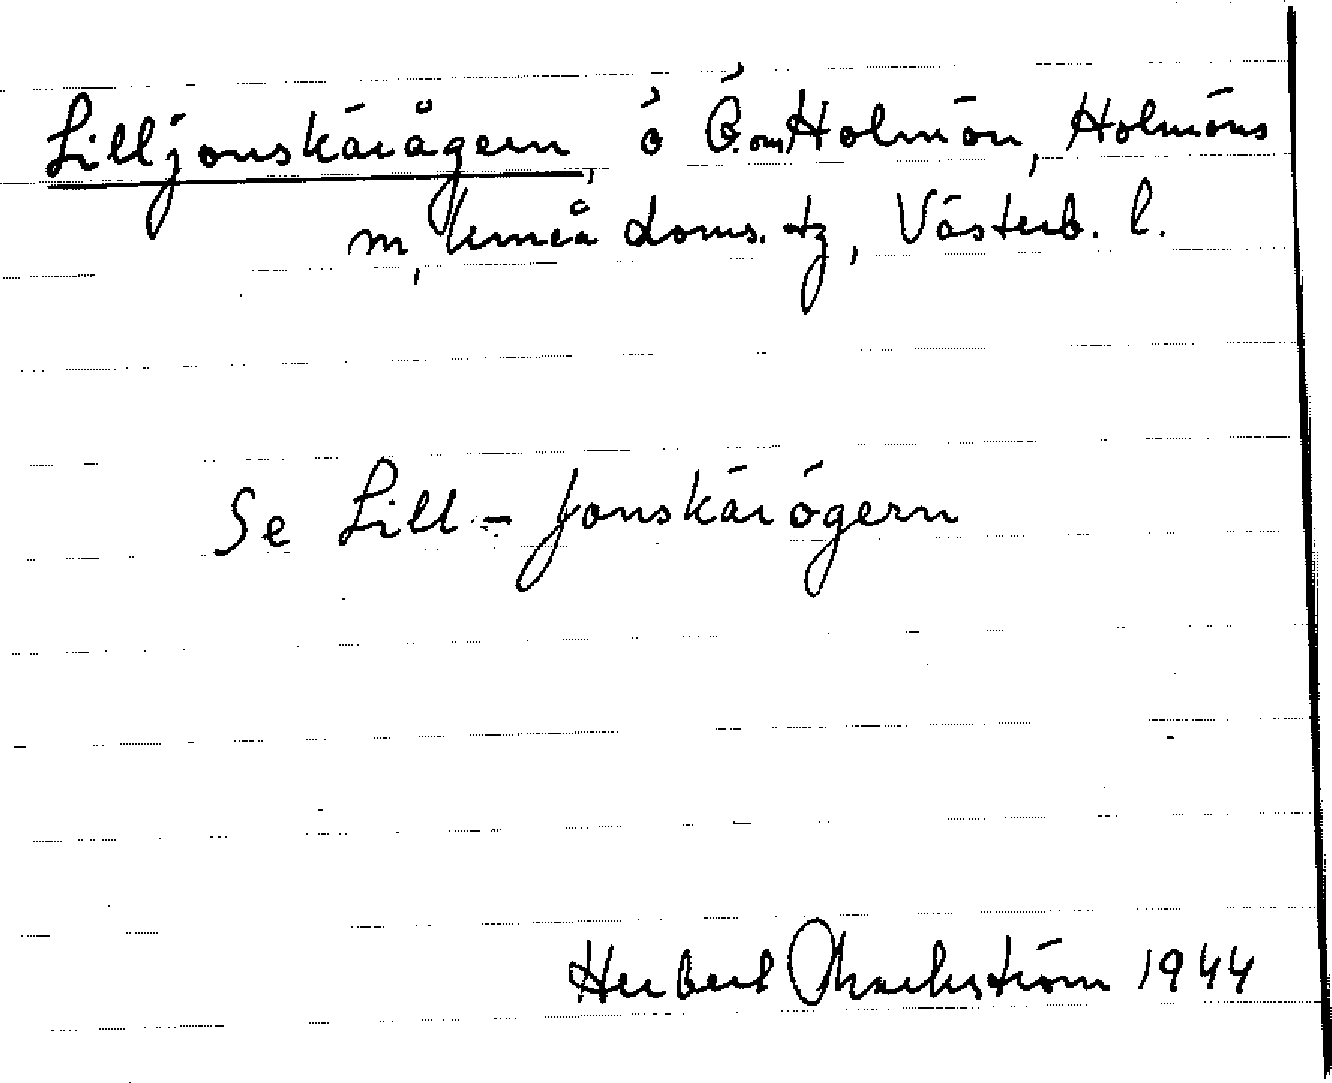 Lilljonskärågern, ö Ö.om Holmön, Holmöns
m, Umeå doms. tz, Västerb. l.
Se Lill-Jonskärögern
Herbert 1944